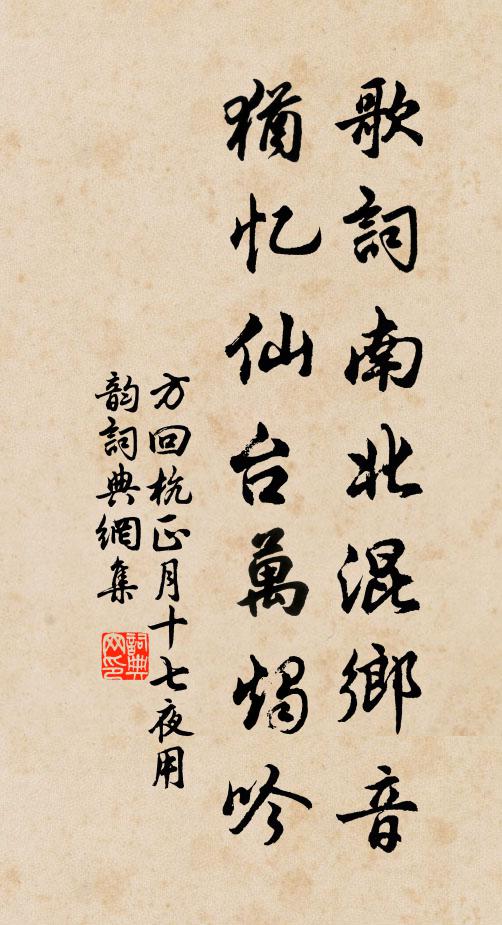 歌詞南北混鄉音
猶忆仙台萬燭吟
方回杭正月十七夜用
韵詞典網集
詞典
网印